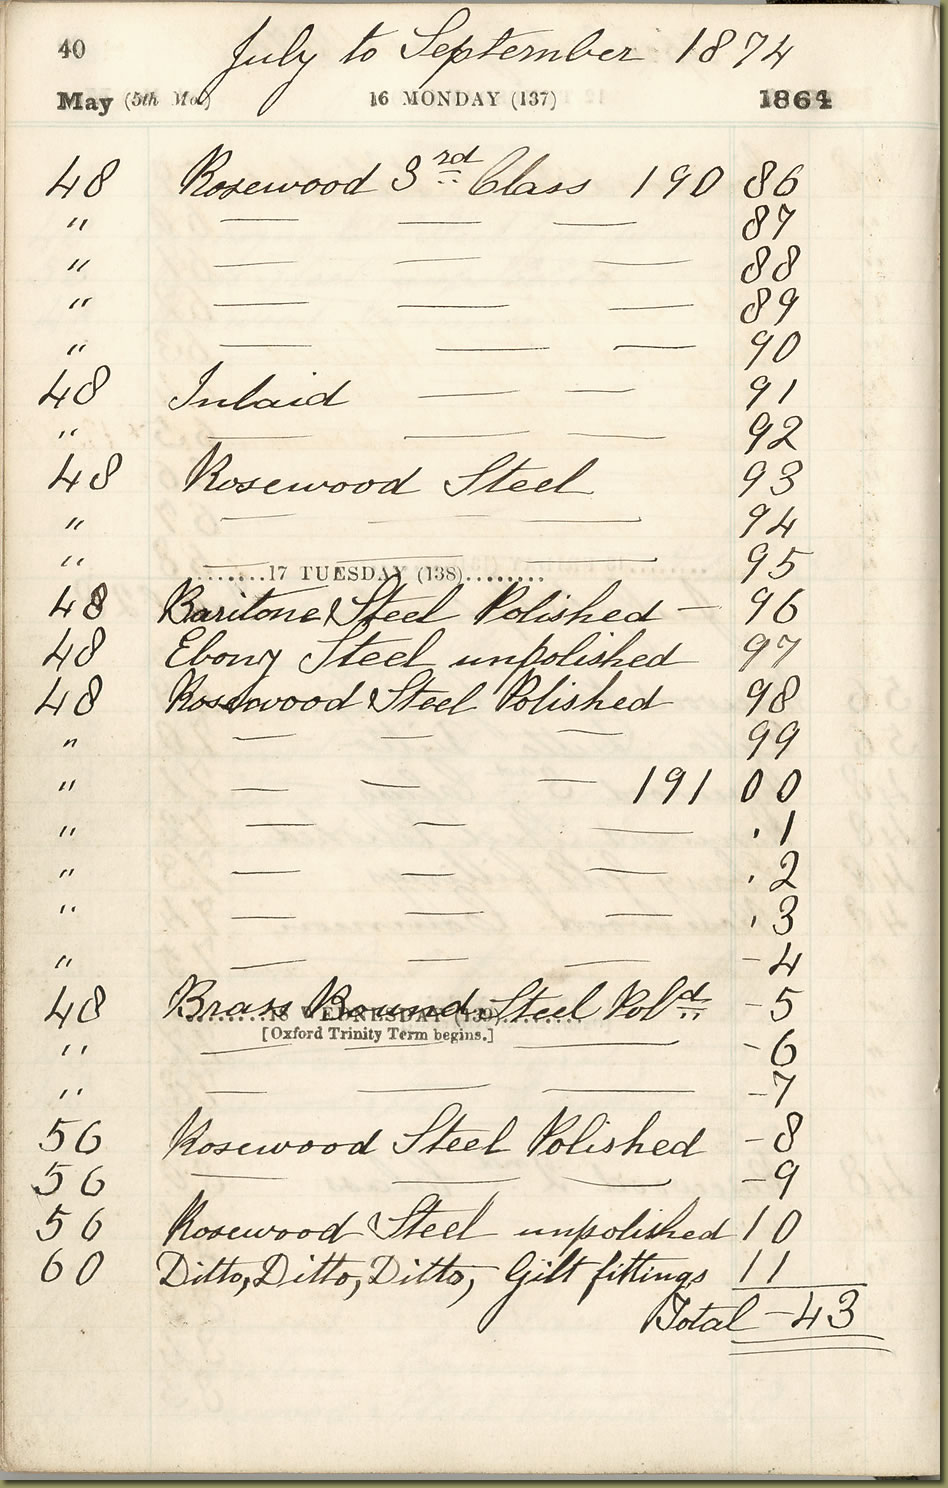 40 July to September 1874
May (5th Mo.) 16 MONDAY (137) 1864
48 Rosewood 3rd Class 190 86
" — — — 87
" — — — 88
" — — — 89
" — — — 90
48 Inlaid — — 91
" — — — 92
48 Rosewood Steel 93
" — — — 94
" — — 95
........17 TUESDAY (138).........
48 Baritone Steel Polished — 96
48 Ebony Steel unpolished 97
48 Rosewood Steel Polished 98
" — — — 99
" — — — 191 00
" — — — . 1
" — — — . 2
" — — — . 3
" — — — - 4
48 Brass Bound Steel Pold - 5
........18 WEDNESDAY (139)........
[Oxford Trinity Term begins.]
" — — — - 6
" — — — - 7
56 Rosewood Steel Polished - 8
56 — — — - 9
56 Rosewood Steel unpolished 10
60 Ditto, Ditto, Ditto, Gilt fittings 11
Total - 43